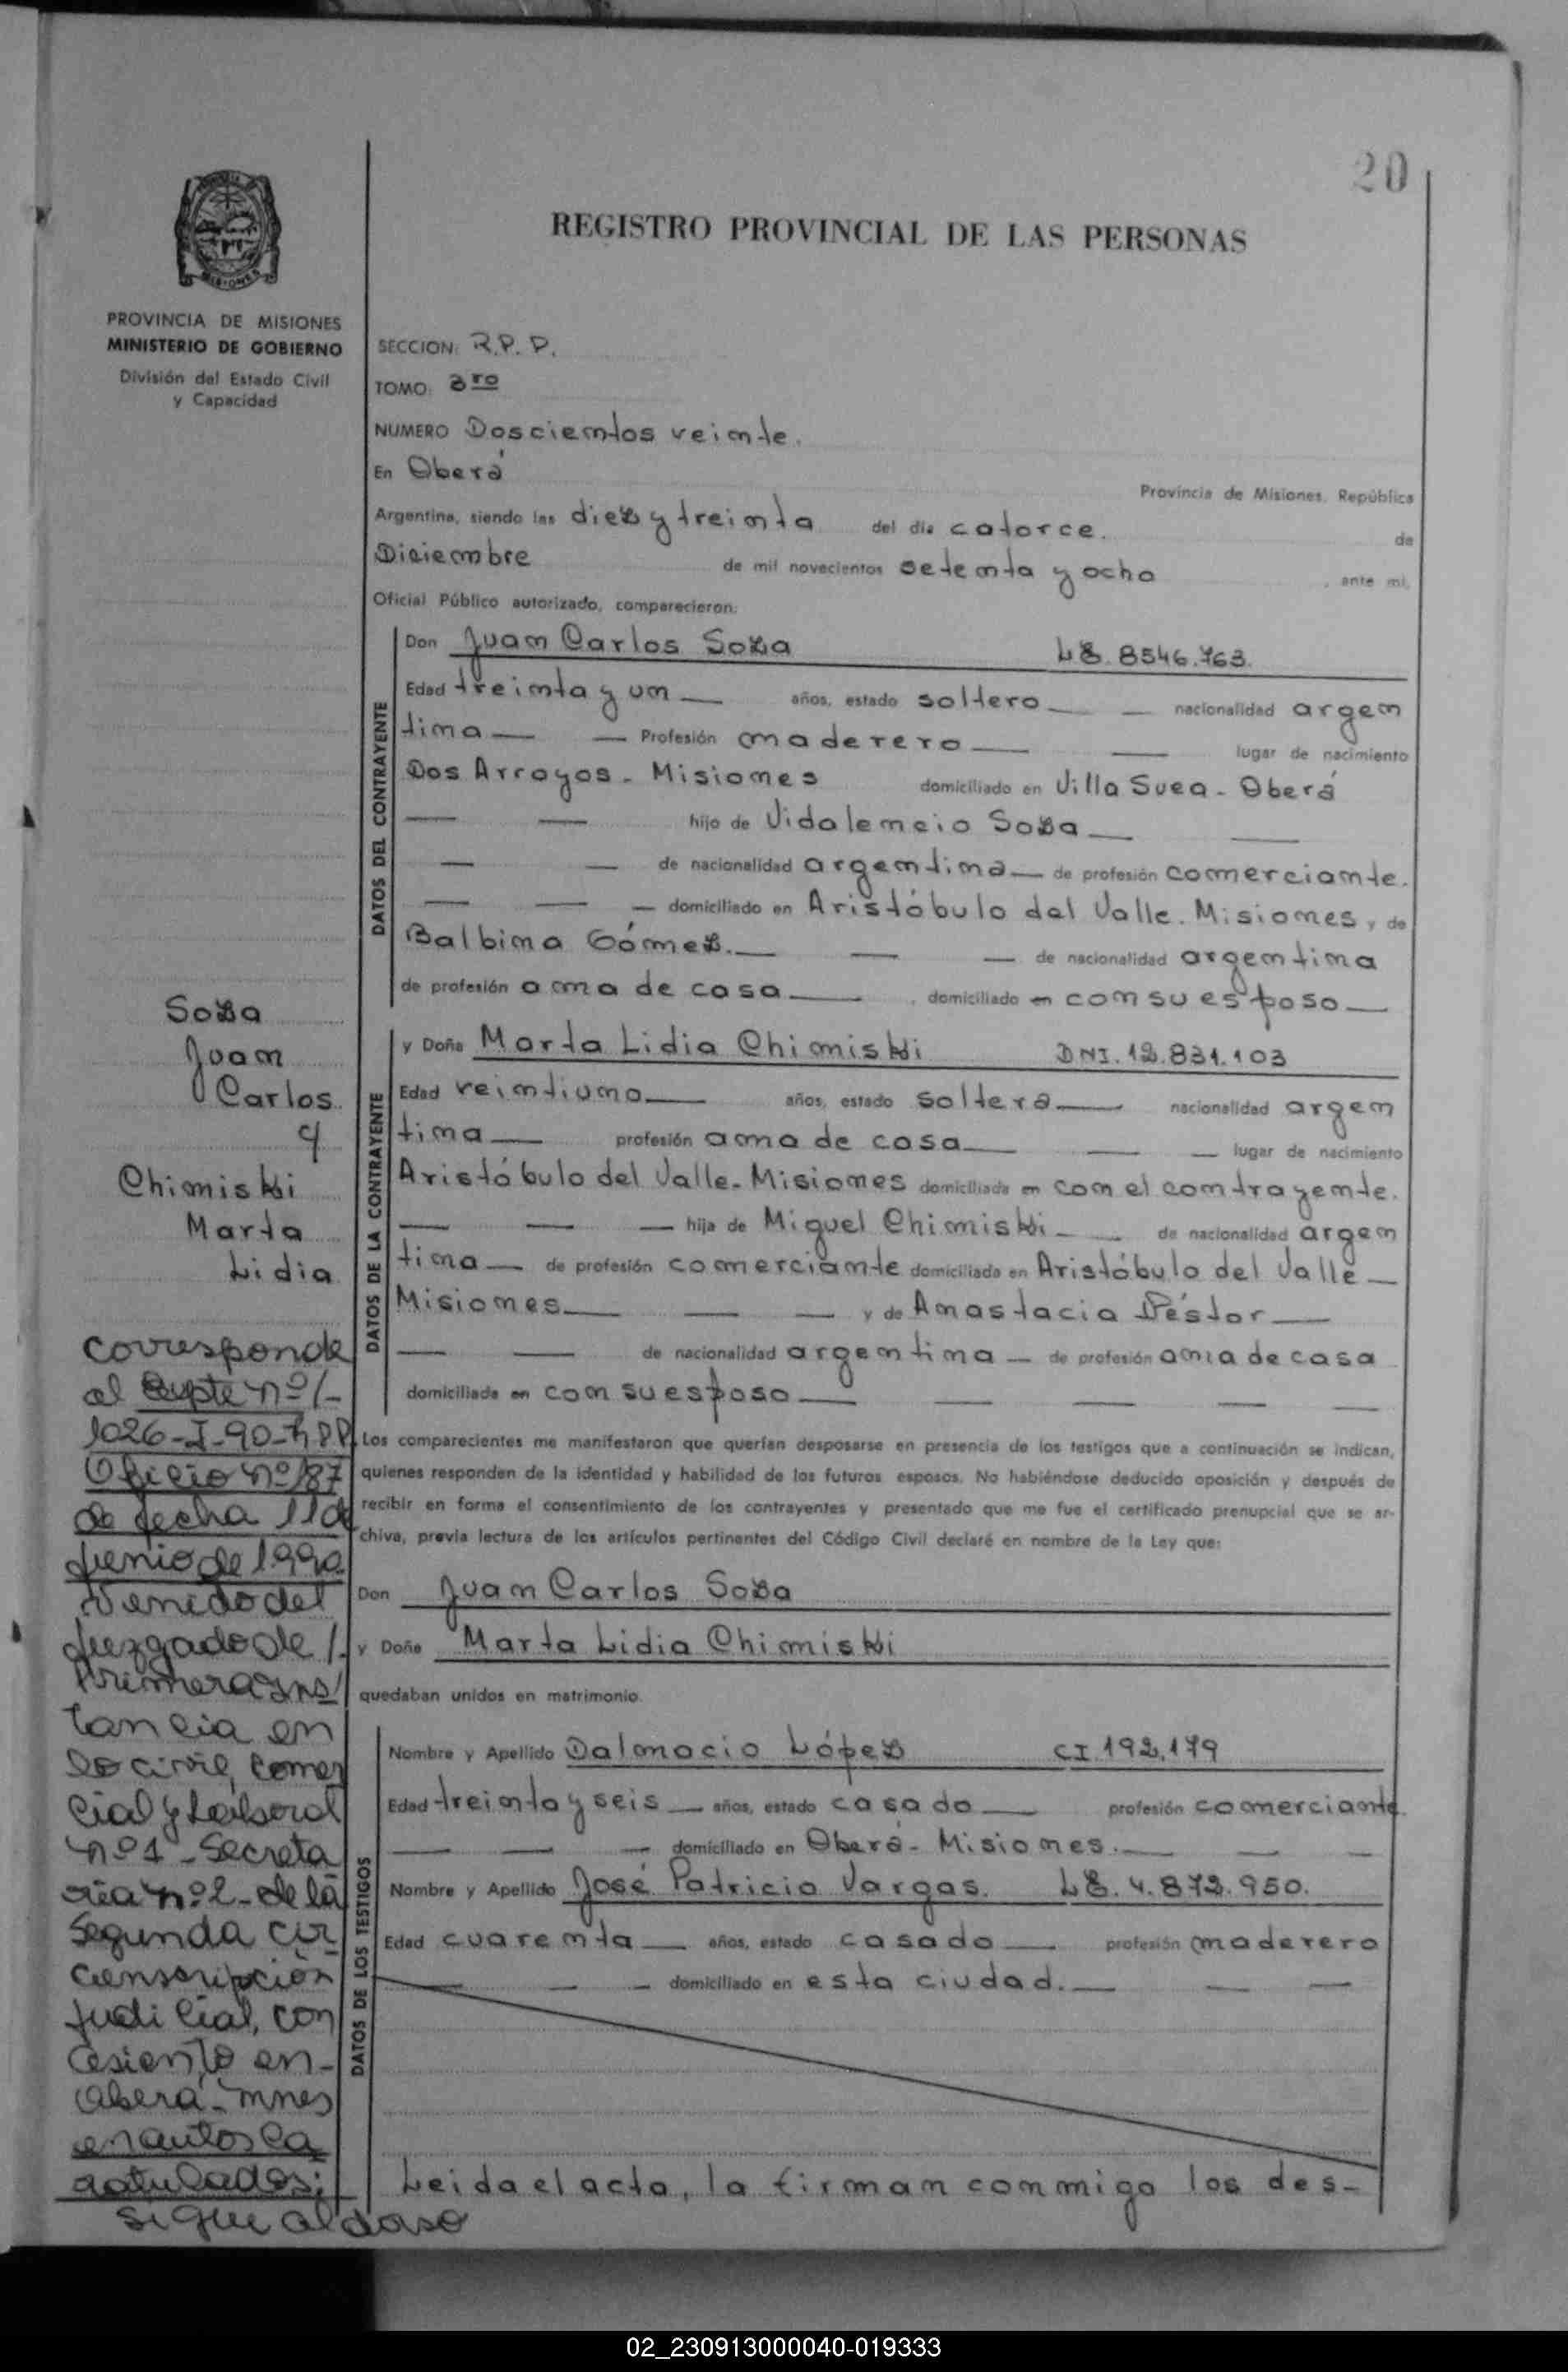 20
REGISTRO PROVINCIAL DE LAS PERSONAS
PROVINCIA DE MISIONES
MINISTERIO DE GOBIERNO
División del Estado Civil
y Capacidad
SECCION: R.P.P.
TOMO: 3ro
NUMERO Doscientos veinte.
En Oberá
Provincia de Misiones, República
Argentina, siendo las diez y treinta del día catorce. de
Diciembre de mil novecientos setenta y ocho, ante mi,
Oficial Público autorizado, comparecieron:
DATOS DEL CONTRAYENTE
Don Juan Carlos Soza LE. 8546.763.
Edad treinta y un años, estado soltero nacionalidad argen
tina Profesión maderero lugar de nacimiento
Dos Arroyos - Misiones domiciliado en Villa Svea - Oberá
hijo de Vidalencio Soza
de nacionalidad argentina de profesión comerciante.
domiciliado en Aristóbulo del Valle. Misiones y de
Balbina Gómez. de nacionalidad argentina
de profesión ama de casa, domiciliado en con su esposo
DATOS DE LA CONTRAYENTE
y Doña Marta Lidia Chiminski DNI. 12.831.103
Edad veintiuna años, estado soltera nacionalidad argen
tina profesión ama de casa lugar de nacimiento
Aristóbulo del Valle - Misiones domiciliada en con el contrayente.
hija de Miguel Chimiski de nacionalidad argen
tina de profesión comerciante domiciliada en Aristóbulo del Valle
Misiones y de Anastacia Péstor
de nacionalidad argentina de profesión ama de casa
domiciliada en con su esposo
Los comparecientes me manifestaron que querían desposarse en presencia de los testigos que a continuación se indican,
quienes responden de la identidad y habilidad de los futuros esposos. No habiéndose deducido oposición y después de
recibir en forma el consentimiento de los contrayentes y presentado que me fue el certificado prenupcial que se ar-
chiva, previa lectura de los artículos pertinentes del Código Civil declaré en nombre de la Ley que:
Don Juan Carlos Soza
y Doña Marta Lidia Chimiski
quedaban unidos en matrimonio.
DATOS DE LOS TESTIGOS
Nombre y Apellido Dalmacio López CI. 192.179
Edad treinta y seis años, estado casado profesión comerciante.
domiciliado en Oberá - Misiones.
Nombre y Apellido José Patricio Vargas. LE. 4.872.950.
Edad cuarenta años, estado casado profesión maderero
domiciliado en esta ciudad.
Leida el acta, la firman conmigo los des-
Soza
Juan
Carlos
y
Chimiski
Marta
Lidia
Corresponde
al Expte nº /-
1026-I-90-R.P.P.
Oficio nº 187
de fecha 11 de
Junio de 1990.
Venido del
Juzgado de /-
Primera Ins
tancia en
lo civil, comer
cial y Laboral
nº 1 - Secreta
ria nº 2 - de la
Segunda cir
cunscripción
Judicial, con
asiento en-
Oberá - mnes
en autos ca
ratulados:
sigue al dorso
02_230913000040-019333